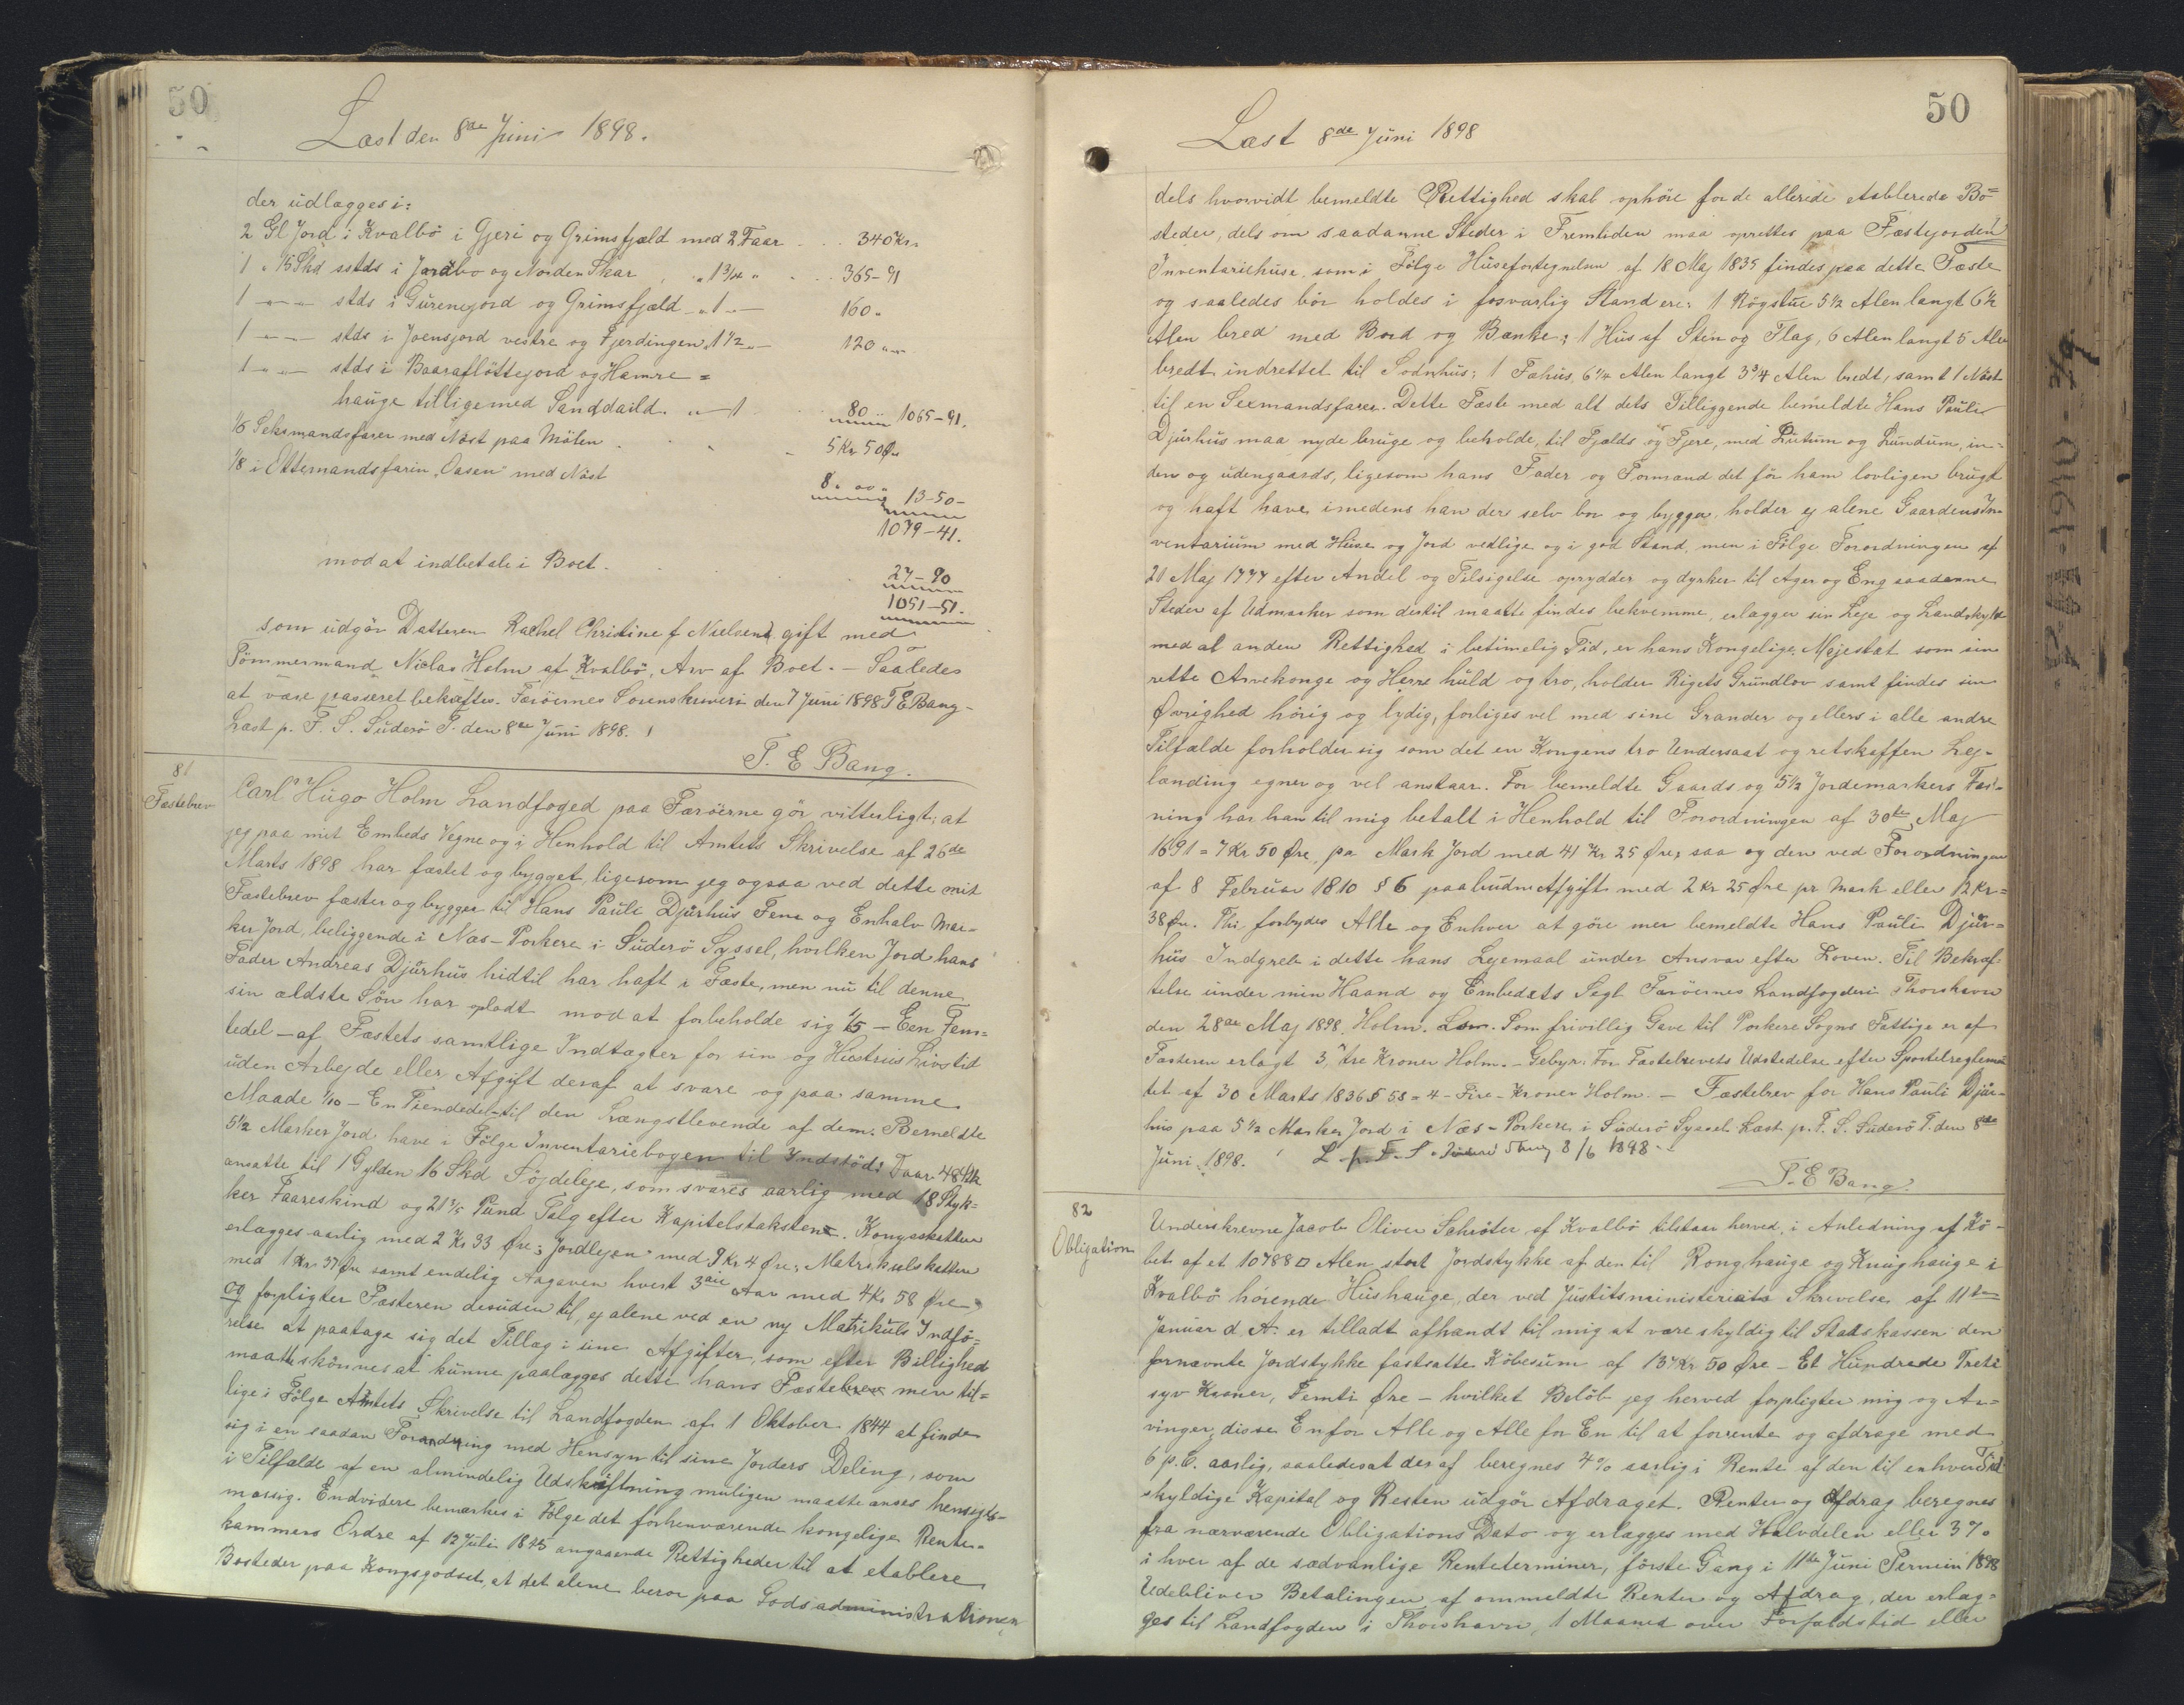 50
Læst den 8de Juni 1898.
der udlægges i:
2 Gl Jord i Kvalbö i Gjeri og Grimsfjæld med 2 Faar . . 340 Kr.
1 " 15 Skd sstds i Jaräbo og Norden Skar " 1 3/4 " . . 365-91
1 — " — stds i Gurenejord og Grimsfjæld — " 1 " — 160 "
1 — " — stds i Joensjord vestre og Fjerdingen " 1 1/2 " — 120 " —
1 — " — stds i Baaraflöttejord og Hamre =
hauge tilligemed Sanddaild. " — 1 80 " 1065-91.
1/6 Seksmandsfarer med Nöst paa Mölen . . . 5 Kr 50 Ø.
1/8 i Ottemandsfarin "Oasen" med Nöst
8. 00. 13-50-
1079-41.
mod at indbetale i Boet . 27-90
1051-51.
som udgör Datteren Rachel Christine f Nielsens, gift med
Tömmermand Niclas Holm af Kvalbö, Arv af Boet. — Saaledes
at være passeret bekræftes. Færöernes Sorenskriveri den 7 Juni 1898 T E Bang -
Læst p. F. S. Suderö T. den 8de Juni 1898.
T. E Bang.
81
Fæstebrev
Carl Hugo Holm Landfoged paa Færöerne gör vitterligt: at
jeg paa mit Embeds Vegne og i Henhold til Amtets Skrivelse af 26de
Marts 1898 har fæstet og bygget, ligesom jeg ogsaa ved dette mit
Fæstebrev fæster og bygger til Hans Pauli Djurhus Fem og Enhalv Mar-
ker Jord, beliggende i Næs-Porkere i Suderö Syssel, hvilken Jord hans
Fader Andreas Djurhus hidtil har haft i Fæste, men nu til denne
sin ældste Sön har opladt mod at forbeholde sig 1/5 — Een Fem=
tedel — af Fæstets samtlige Indtægter for sin og Hustrus Livstid
uden Arbejde eller Afgift deraf at svare og paa samme
Maade 1/10 — En Tiendedel — til den Længstlevende af dem. Bemeldte
5 1/2 Marker Jord have i Fölge Inventariebogen til Indstöds Faar 48 Stk
ansatte til 1 Gylden 16 Skd Söjdeleje, som svares aarlig med 18 Styk=
ker Faareskind og 21 3/5 Pund Talg efter Kapitelstaksten. Kongsskatten
erlægges aarlig med 2 Kr 33 Øre; Jordlejen med 9 Kr 4 Øre; Matrikulskatten
med 1 Kr. 37 Øre samt endelig Aagaven hvert 3die Aar med 4 Kr 58 Øre
og forpligter Fæsteren desuden til, ej alene ved en ny Matrikuls Indfö=
relse at paatage sig det Tillæg i sine Afgifter, som efter Billighed
maatte skönnes at kunne paalægges dette hans Fæstebrev men til=
lige i Fölge Amtets Skrivelse til Landfogden af 1 Oktober 1844 at finde
sig i en saadan Forandring med Hensyn til sine Jorders Deling, som
i Tilfælde af en almindelig Udskiftning muligen maatte anses hensigts-
mæssig. Endvidere bemærkes i Fölge det forhenværende kongelige Rente-
kammers Ordre af 12 Juli 1845 angaaende Rettigheder til at etablere
Bosteder paa Kongsgodset, at det alene beror paa Godsadministrationen,
50
Læst 8de Juni 1898
dels hvorvidt bemeldte Rettighed skal ophöre for de allerede etablerede Bo=
steder, dels om saadanne Steder i Fremtiden maa oprettes paa Fæstejorden
Inventariehuse, som i Fölge Husefortegnelsen af 18 Maj 1835 findes paa dette Fæste
og saaledes bör holdes i forsvarlig Stand ere: 1 Rögstue 5 1/2 Alen langt 6 1/2
Alen bred med Bord og Bænke; 1 Hus af Sten og Flag, 6 Alen langt 5 Alen
bredt indrettet til Sodnhus; 1 Fæhus, 6 1/4 Alen langt 3 3/4 Alen bredt, samt 1 Nöst
til en Sexmandsfarer. Dette Fæste med alt dets Tilliggende bemeldte Hans Pauli
Djurhus maa nyde bruge og beholde, til Fjælds og Fjere, med Lutum og Lundum, in=
den og udengaards, ligesom hans Fader og Formand det för ham lovligen brugt
og haft have, imedens han der selv bor og bygger, holder ej alene Gaardens In-
ventarium med Huse og Jord vedlige og i god Stand, men i Fölge Forordningen af
21 Maj 1777 efter Andel og Tilsigelse oprydder og dyrker til Ager og Eng saadanne
Steder af Udmarker som dertil maatte findes bekvemme, erlægger sin Leje og Landskyld
med al anden Rettighed i betimelig Tid, er hans Kongelige Majestæt som sin
rette Arvekonge og Herre huld og tro, holder Rigets Grundlov samt findes sin
Øvrighed hörig og lydig, forliges vel med sine Grander og ellers i alle andre
Tilfælde forholder sig som det en Kongens tro Undersaat og retskaffen Lej-
lænding egner og vel anstaar. For bemeldte Gaards og 5 1/2 Jordemarkers Fæst-
ning har han til mig betalt i Henhold til Forordningen af 30te Maj
1691 = 7 Kr 50 Øre, pr Mark Jord med 41 Kr 25 Øre; saa og den ved Forordningen
af 8 Februar 1810 § 6 paabudne Afgift med 2 Kr 25 Øre pr Mark eller 12 Kr =
38 Øre. Thi forbydes Alle og Enhver at göre mer bemeldte Hans Pauli Djur=
hus Indgreb i dette hans Lejemaal under Ansvar efter Loven. Til Bekræf-
telse under min Haand og Embedets Segl. Færöernes Landfogderi Thorshavn
den 28de Maj 1898. Holm. Som frivillig Gave til Porkere Sogns Fattige er af
Fæsteren erlagt 3, tre Kroner Holm. — Gebyr. For Fæstebrevets Udstedelse efter Sportelreglemen
tet af 30 Marts 1836 § 58 = 4 - Fire - Kroner Holm. — Fæstebrev for Hans Pauli Djur-
hus paa 5 1/2 Marker Jord i Næs-Porkere i Suderö Syssel. Læst p. F. S. Suderö T. den 8de
Juni 1898. L. p. F. S. Suderö Thing 8/6 1898 -
T. E Bang.
82
Obligation
Underskrevne Jacob Oliver Schröter af Kvalbö tilstaar herved, i Anledning af Kö-
bet af et 10788 □ Alen stort Jordstykke af den til Ronghauge og Krughauge i
Kvalbö hörende Hushauge, der ved Justitsministeriets Skrivelse af 11te
Januar d. A. er tilladt afhændt til mig at være skyldig til Statskassen den
fornævnte Jordstykke fastsatte Köbesum af 137 Kr 50 Øre — Et Hundrede Treti
syv Kroner, Femti Øre — hvilket Belöb jeg herved forpligter mig og Ar-
vinger, disse En for Alle og Alle for En til at forrente og afdrage med
6 p. C. aarlig, saaledes at deraf beregnes 4 % aarlig i Rente af den til enhver Tid
skyldige Kapital og Resten udgör Afdraget. Renter og Afdrag beregnes
fra nærværende Obligations Dato og erlægges med Halvdelen eller 3 %
i hver af de sædvanlige Renteterminer, förste Gang i 11te Juni Termin 1898
Udebliver Betalingen af ommeldte Renter og Afdrag, der erlæg=
ges til Landfogden i Thorshavn, 1 Maaned over Forfaldstid eller